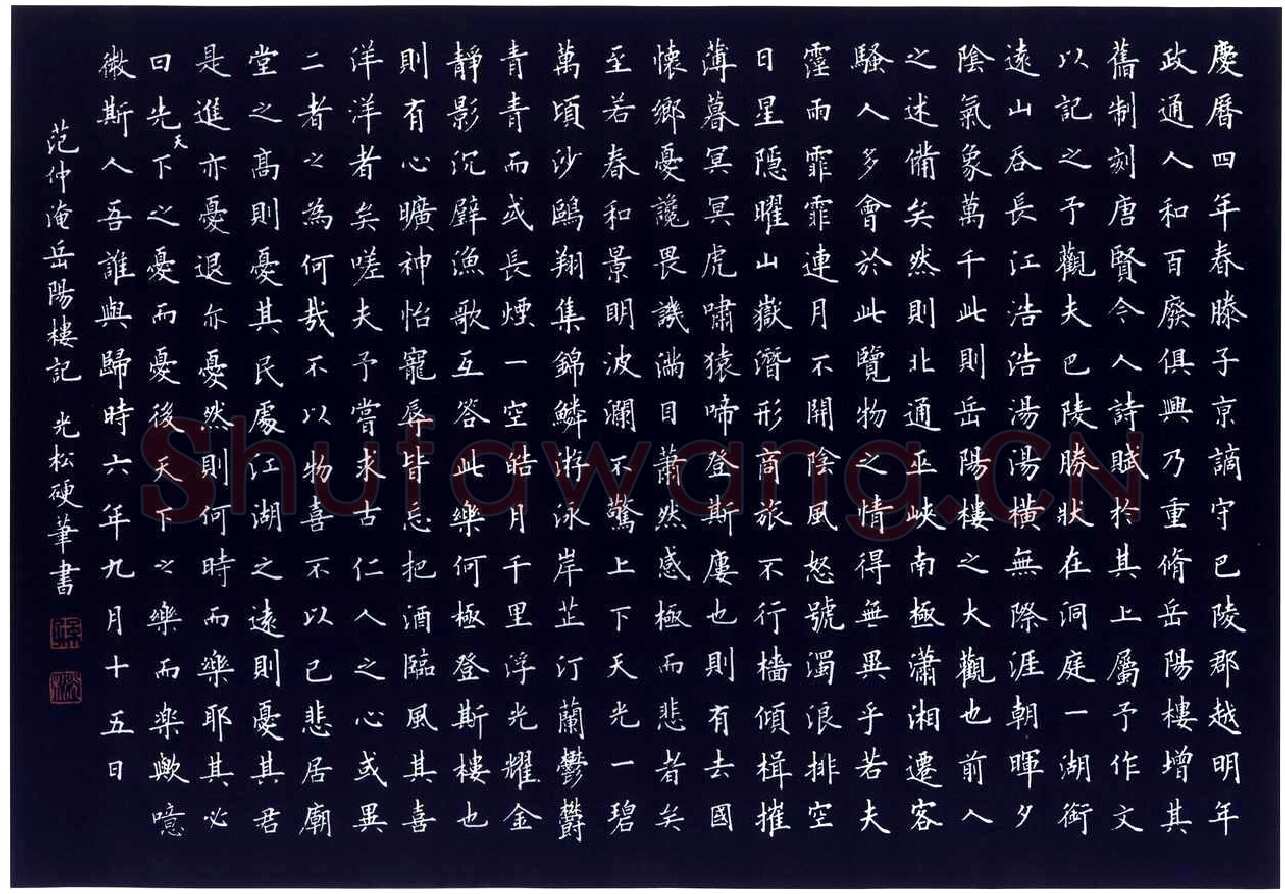 慶曆四年春滕子京謫守巴陵郡越明年
政通人和百廢俱興乃重脩岳陽樓增其
舊制刻唐賢今人詩賦於其上屬予作文
以記之予觀夫巴陵勝狀在洞庭一湖銜
遠山吞長江浩浩湯湯橫無際涯朝暉夕
陰氣象萬千此則岳陽樓之大觀也前人
之述備矣然則北通巫峽南極瀟湘遷客
騷人多會於此覽物之情得無異乎若夫
霪雨霏霏連月不開陰風怒號濁浪排空
日星隱曜山嶽潛形商旅不行檣傾楫摧
薄暮冥冥虎嘯猿啼登斯廔也則有去國
懷鄉憂讒畏譏滿目蕭然感極而悲者矣
至若春和景明波瀾不驚上下天光一碧
萬頃沙鷗翔集錦鱗游泳岸芷汀蘭鬱欝
青青而或長煙一空皓月千里浮光耀金
靜影沉壁漁歌互答此樂何極登斯樓也
則有心曠神怡寵辱皆忘把酒臨風其喜
洋洋者矣嗟夫予嘗求古仁人之心或異
二者之為何哉不以物喜不以己悲居廟
堂之高則憂其民處江湖之遠則憂其君
是進亦憂退亦憂然則何時而樂耶其必
曰先天下之憂而憂後天下之樂而楽歟噫
微斯人吾誰與歸時六年九月十五日
范仲淹岳陽樓記 光松硬筆書
Shufawang.CN